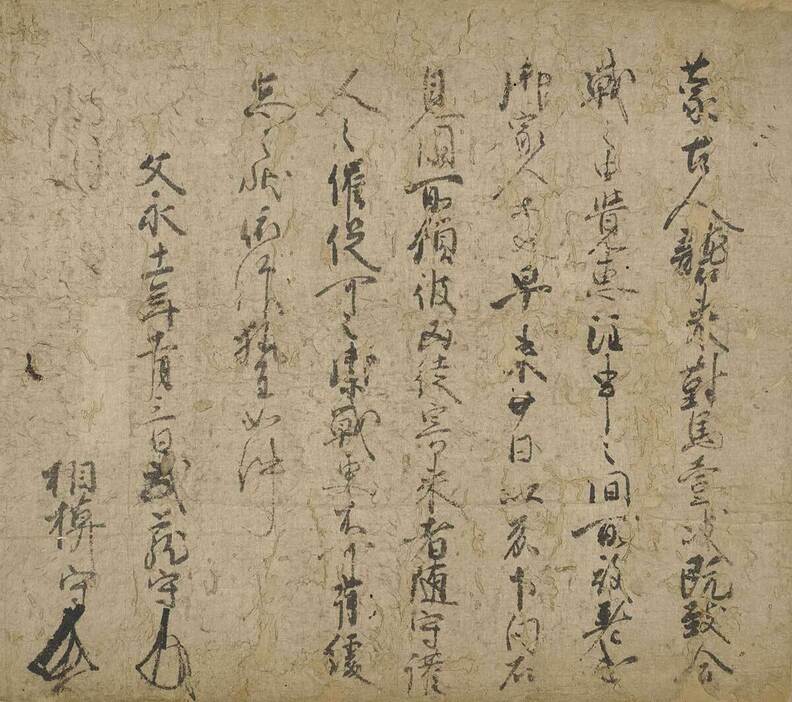 蒙古人襲来對馬壹岐既致合
戰之由覺惠注申之間所被差遣
御家人等也早来廿日以前下向石
見國所領彼凶徒寄来者随守護
人之催促可令禦戰更不可有緩
怠之状依仰執達如件
文永十一年十一月三日武蔵守
相模守